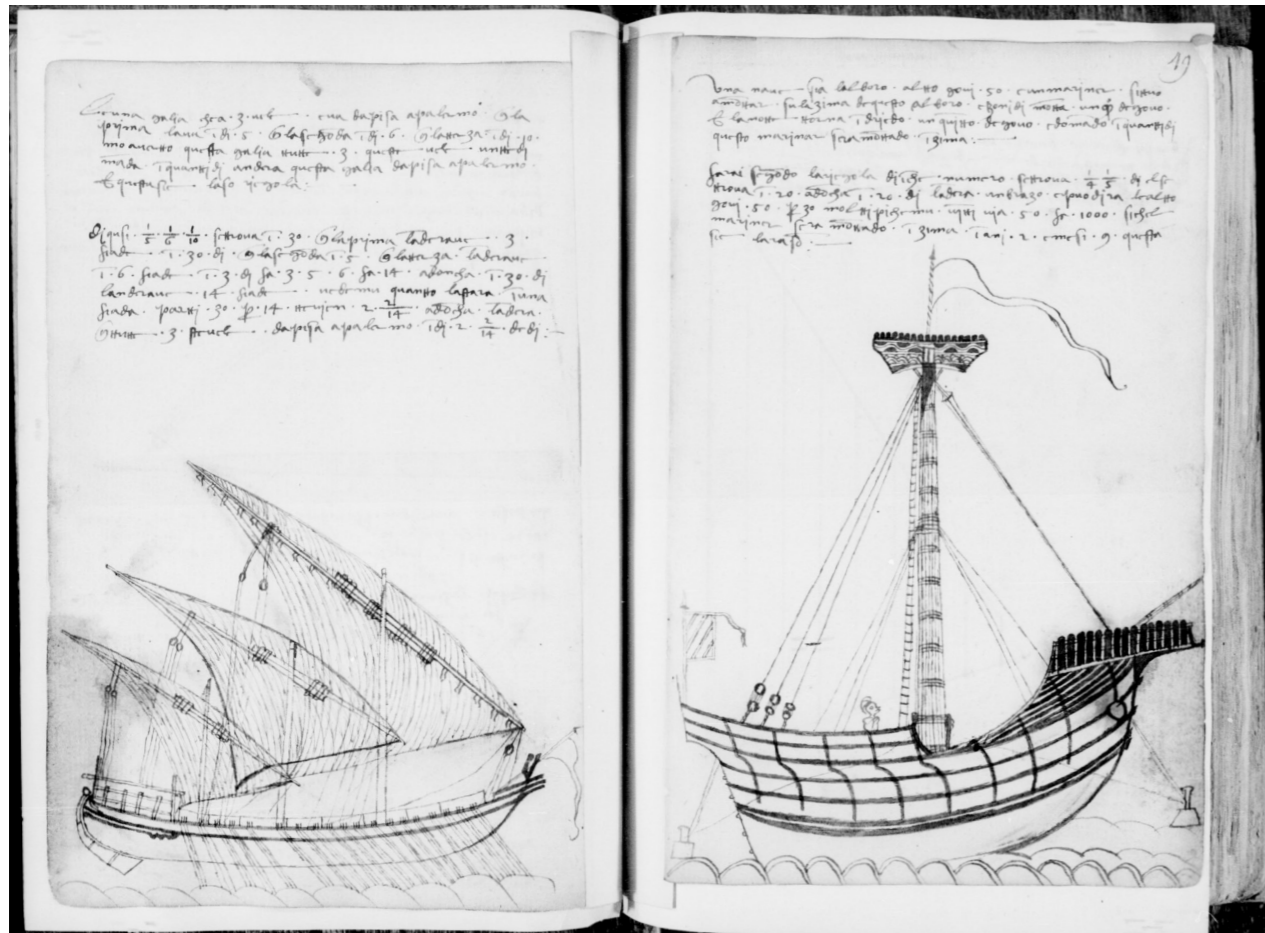 una galia cha · 3 · vele · eva da pisa apalermo · E la
prima laua i di · 5 · E la sechoda i di · 6 · E la terza · i di · 10 ·
mo auerto questa galia tutte · 3 · queste vele
mada · i quanti di andera questa galia da pisa apalermo ·
E questa sie la so regola :
Di qusi · 1/5 · 1/6 · 1/10 · se trova i · 30 · E la prima laderave · 3 ·
fiade · i · 30 · di · E la sechoda i · 5 · E la terza laderave
i · 6 · fiade · i · 3 · di fa · 3 · 5 · 6 · fa · 14 · adoncha · i · 30 · di
landerave · 14 · fiade · vedemo quanto la stara i una
fiada · parti · 30 · p · 14 · ne vien · 2 · 2/14 · adocha · ladera ·
tutte · 3 · vele · da pisa apalermo · i di · 2 · 2/14 · de di :
49
Una nave sia lalboro · alto govi · 50 · e un mariner · si vuo
motar · su la zima de questo alboro · e zoni di monta · un 1/4 de govo ·
E la note torna i driedo · un quito de govo · e domado i quanti di
questo mariner sera montado i zima :
farai segodo la regola di che · numero se trova · 1/4 1/5 · di el se
trova i · 20 · adocha i · 20 · di ladera · un brazo · e può dira le alto
govi · 50 · p zo moltipichemo · vinti via · 50 · fa · 1000 · si che l
mariner sera montado · i zima · i ani · 2 · e mesi · 9 · questa
sie la raso :